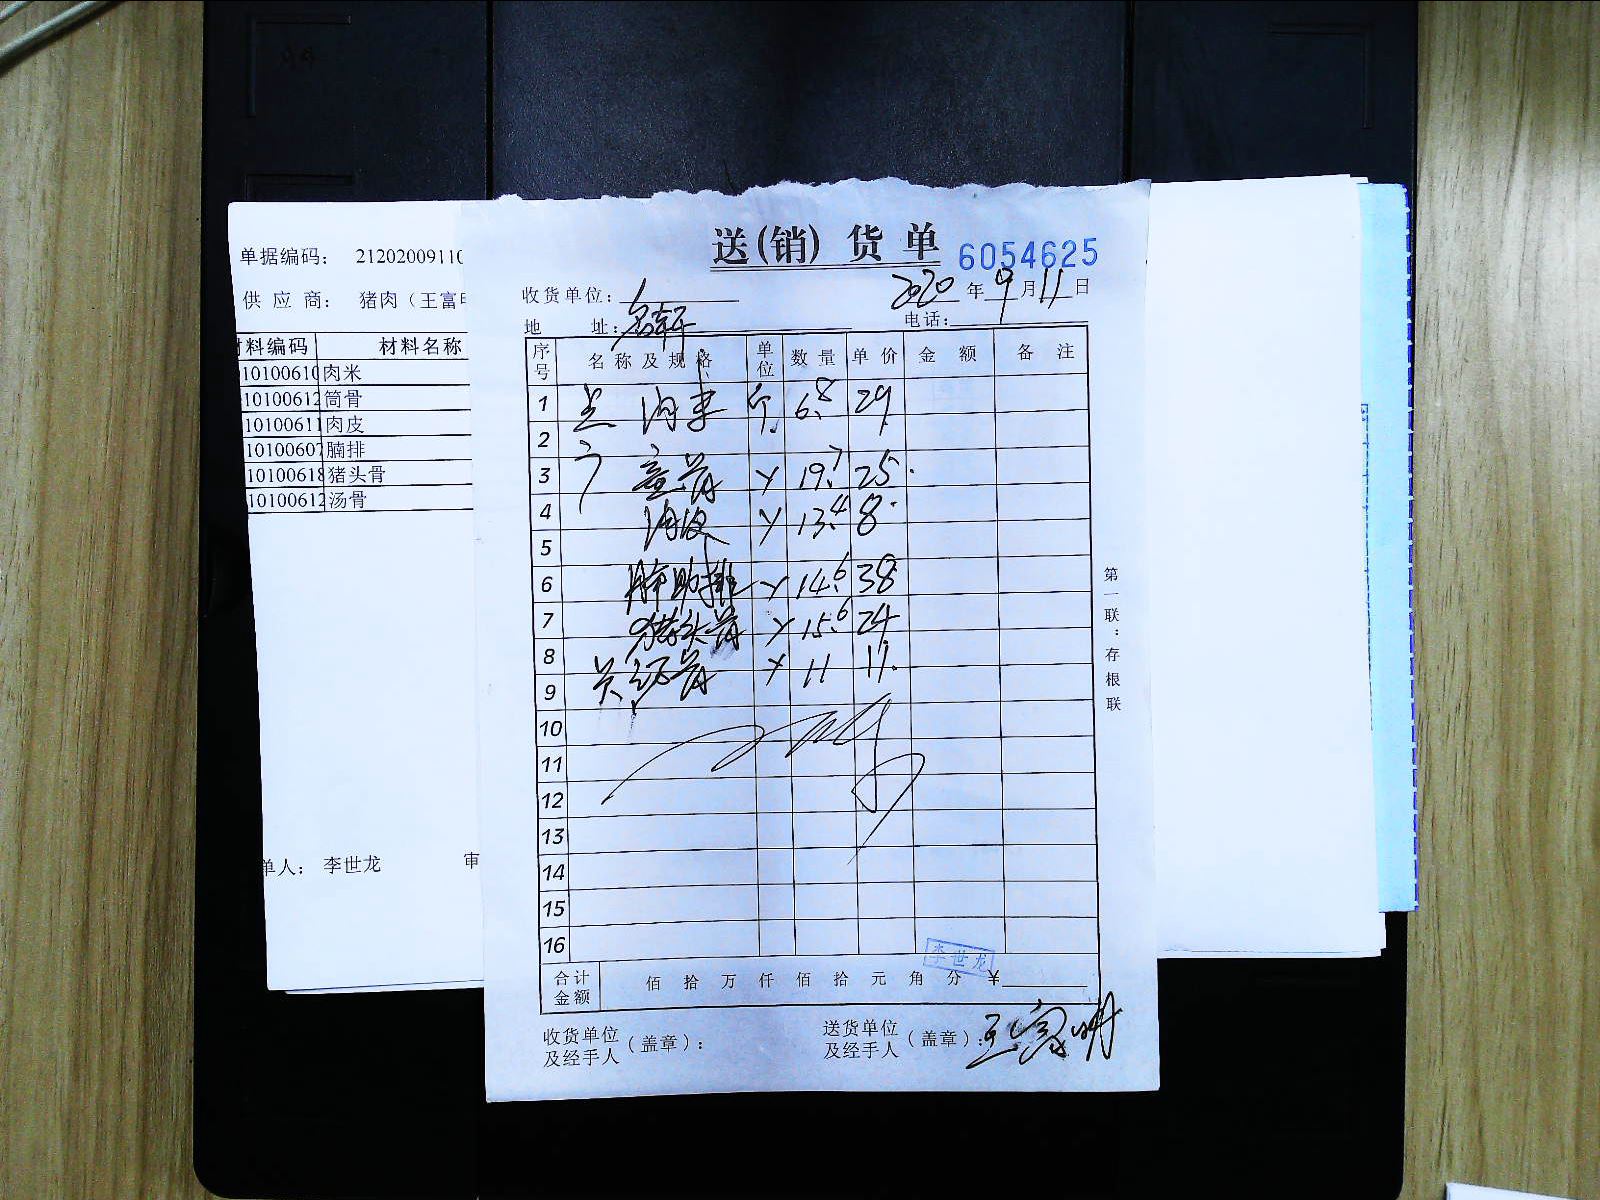 送(销)货单 6054625
收货单位：
2020年9月11日
地 址：名轩 电话：
序号 名称及规格 单位 数量 单价 金额 备注
1 肉末 斤 6.8 29
2
3 童骨 19.7 25
4 肉皮 13.4 8
5
6 腩肋排 14.6 38
7 猪头骨 15.6 24
8 骨 11 17
9
10
11
12
13
14
15
16
李世龙
合计金额 佰 拾 万 仟 佰 拾 元 角 分 ¥
收货单位及经手人（盖章）：
送货单位及经手人（盖章）：王富明
第一联：存根联
单据编码： 2120200911
供应商： 猪肉（王富
材料编码 材料名称
1010061 肉米
10100612 筒骨
1010061 肉皮
1010060 腩排
10100618 猪头骨
10100612 汤骨
单人： 李世龙 审